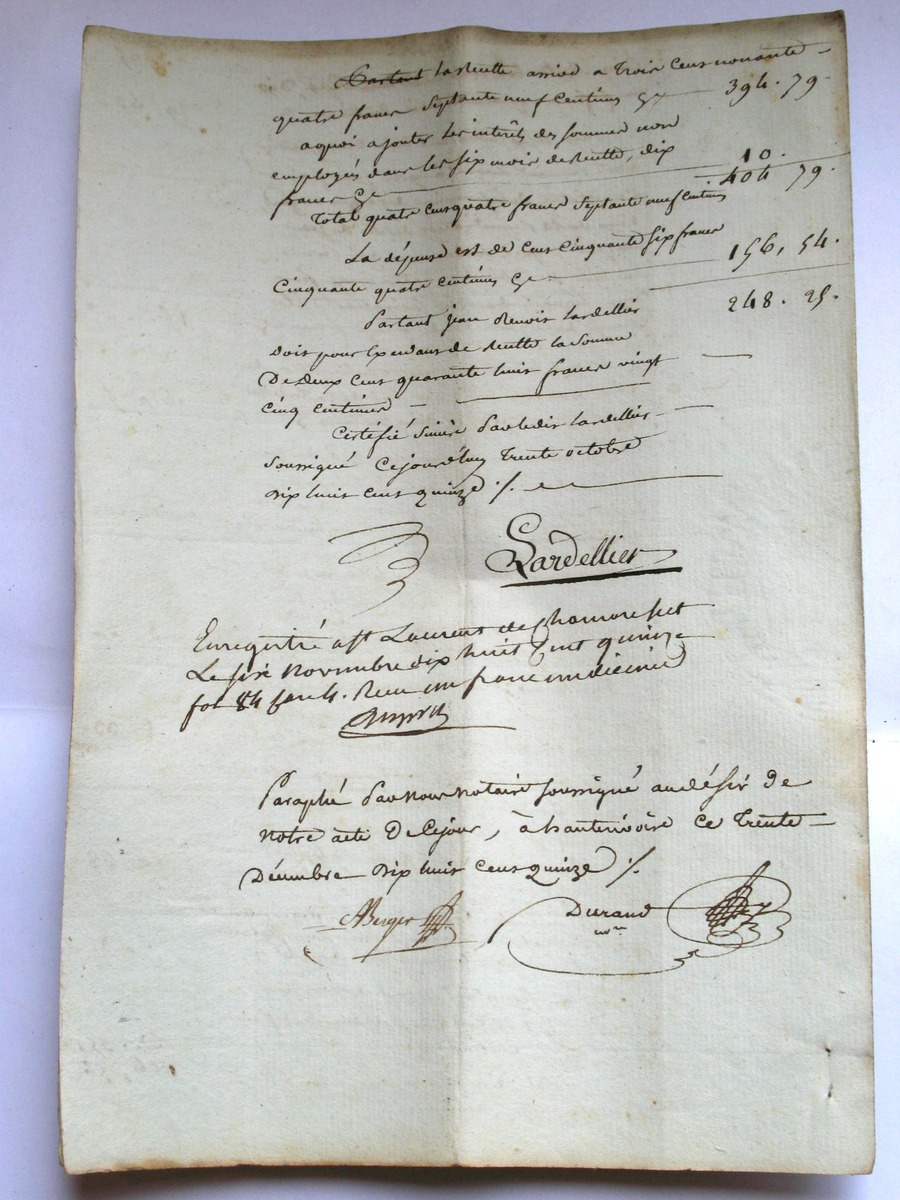 Partant la Recette arrive a trois cens nonante
quatre francs septante neuf Centimes Cy 394. 79.
a quoi ajouter les intérêts des sommes non
employés dans les six mois de Recette, dix
francs Cy 10.
Total quatre cens quatre francs septante neuf Centimes 404 79.
La dépense est de Cens Cinquante six francs
Cinquante quatre Centimes Cy 156, 54.
Partant jean Benoit Lardellier 248. 25.
Doit pour Expédans de Recette la somme
De deux cens quarante huit francs vingt
cinq centimes
Certifié sincère par ledit Lardellier
soussigné Cejourdhuy trente octobre
dix huit cens quinze ./.
Lardellier
Enregistré a St Laurent de Chamousset
Le six Novembre dix huit Cent quinze
fol 84 Case 4. Reçu un franc un décime
Paraphé par nous notaire soussigné au désir de
notre acte de Cejour, à hauterivoire ce trente
Décembre dix huit cens quinze ./.
ABerger Durand
nre